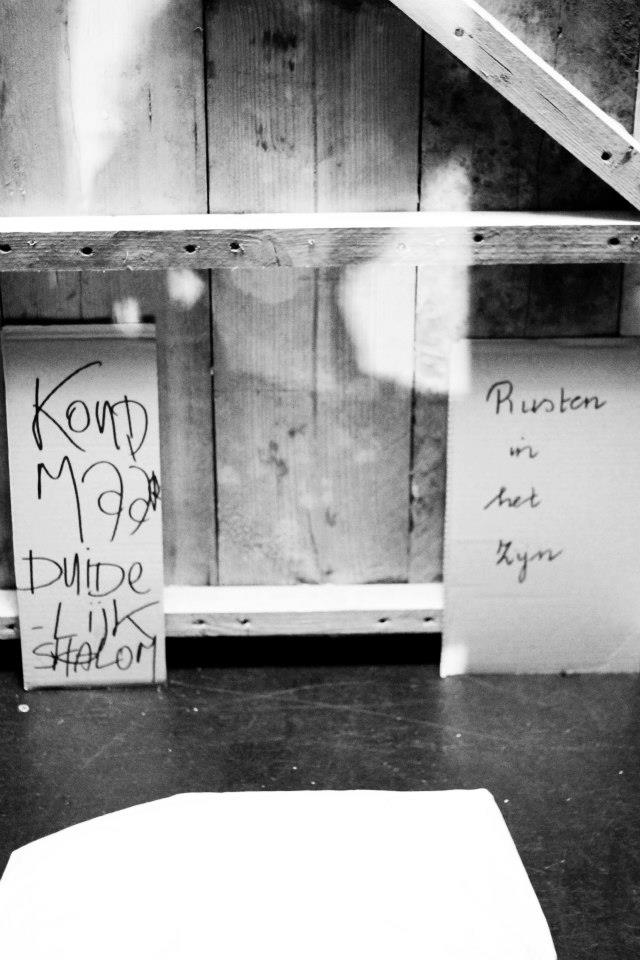 KOND
MAAR
DUIDE
-LIJK
SHALOM
Rusten
in
het
Zijn